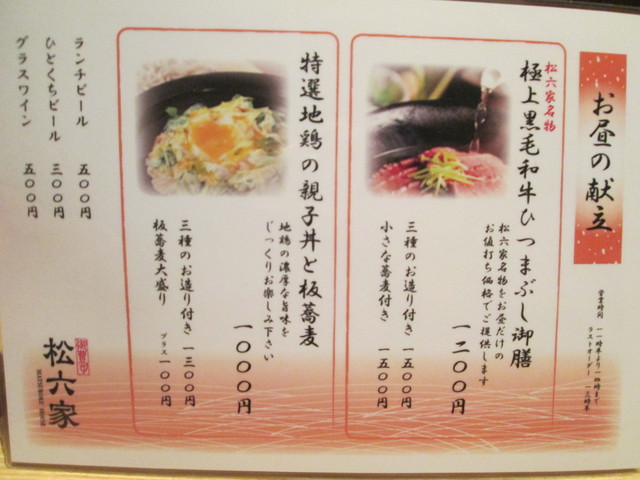 お昼の献立
営業時間 一一時半より一四時まで
ラストオーダー 一三時半
松六家名物
極上黒毛和牛ひつまぶし御膳
松六家名物をお昼だけの
お値打ち価格でご提供します
一二〇〇円
三種のお造り付き 一五〇〇円
小さな蕎麦付き 一五〇〇円
特選地鶏の親子丼と板蕎麦
地鶏の濃厚な旨味を
じっくりお楽しみ下さい
一〇〇〇円
三種のお造り付き 一三〇〇円
板蕎麦大盛り プラス 一〇〇円
ランチビール 五〇〇円
ひとくちビール 三〇〇円
グラスワイン 五〇〇円
松六家